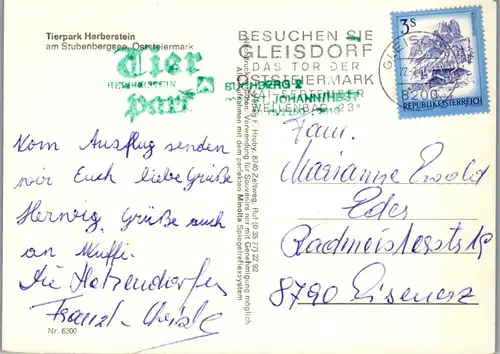 Tierpark Herberstein
am Stubenbergsee, Oststeiermark
Tier
HERBERSTEIN
park
BUCHBERG 2
JOHANN HEST
BESUCHEN SIE
GLEISDORF
DAS TOR DER
OSTSTEIERMARK
MAI-SEPTEMBER
WELLENBAD 23°
GLEISDORF
8200
3S
REPUBLIK ÖSTERREICH
Vom Ausflug senden
wir Euch liebe Grüße
Herwig. Grüße auch
an Muffi.
Die Hatzendorfer
Franzl
Nr. 6300
F. Hruby, 8740 Zeltweg, Ruf (0 35 77) 22 92
Verwendung für Souvenirs nur mit Genehmigung möglich.
Aufnahmen mit dem perfekten Minolta Spiegelreflexsystem
Fam.
Marianne Ewald
Eder
Radmeisterstr 19
8790 Eisenerz